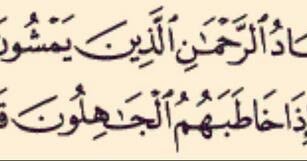 ادُ ٱلرَّحْمَـٰنِ ٱلَّذِينَ يَمْشُونَ
إِذَا خَاطَبَهُمُ ٱلْجَـٰهِلُونَ قَ